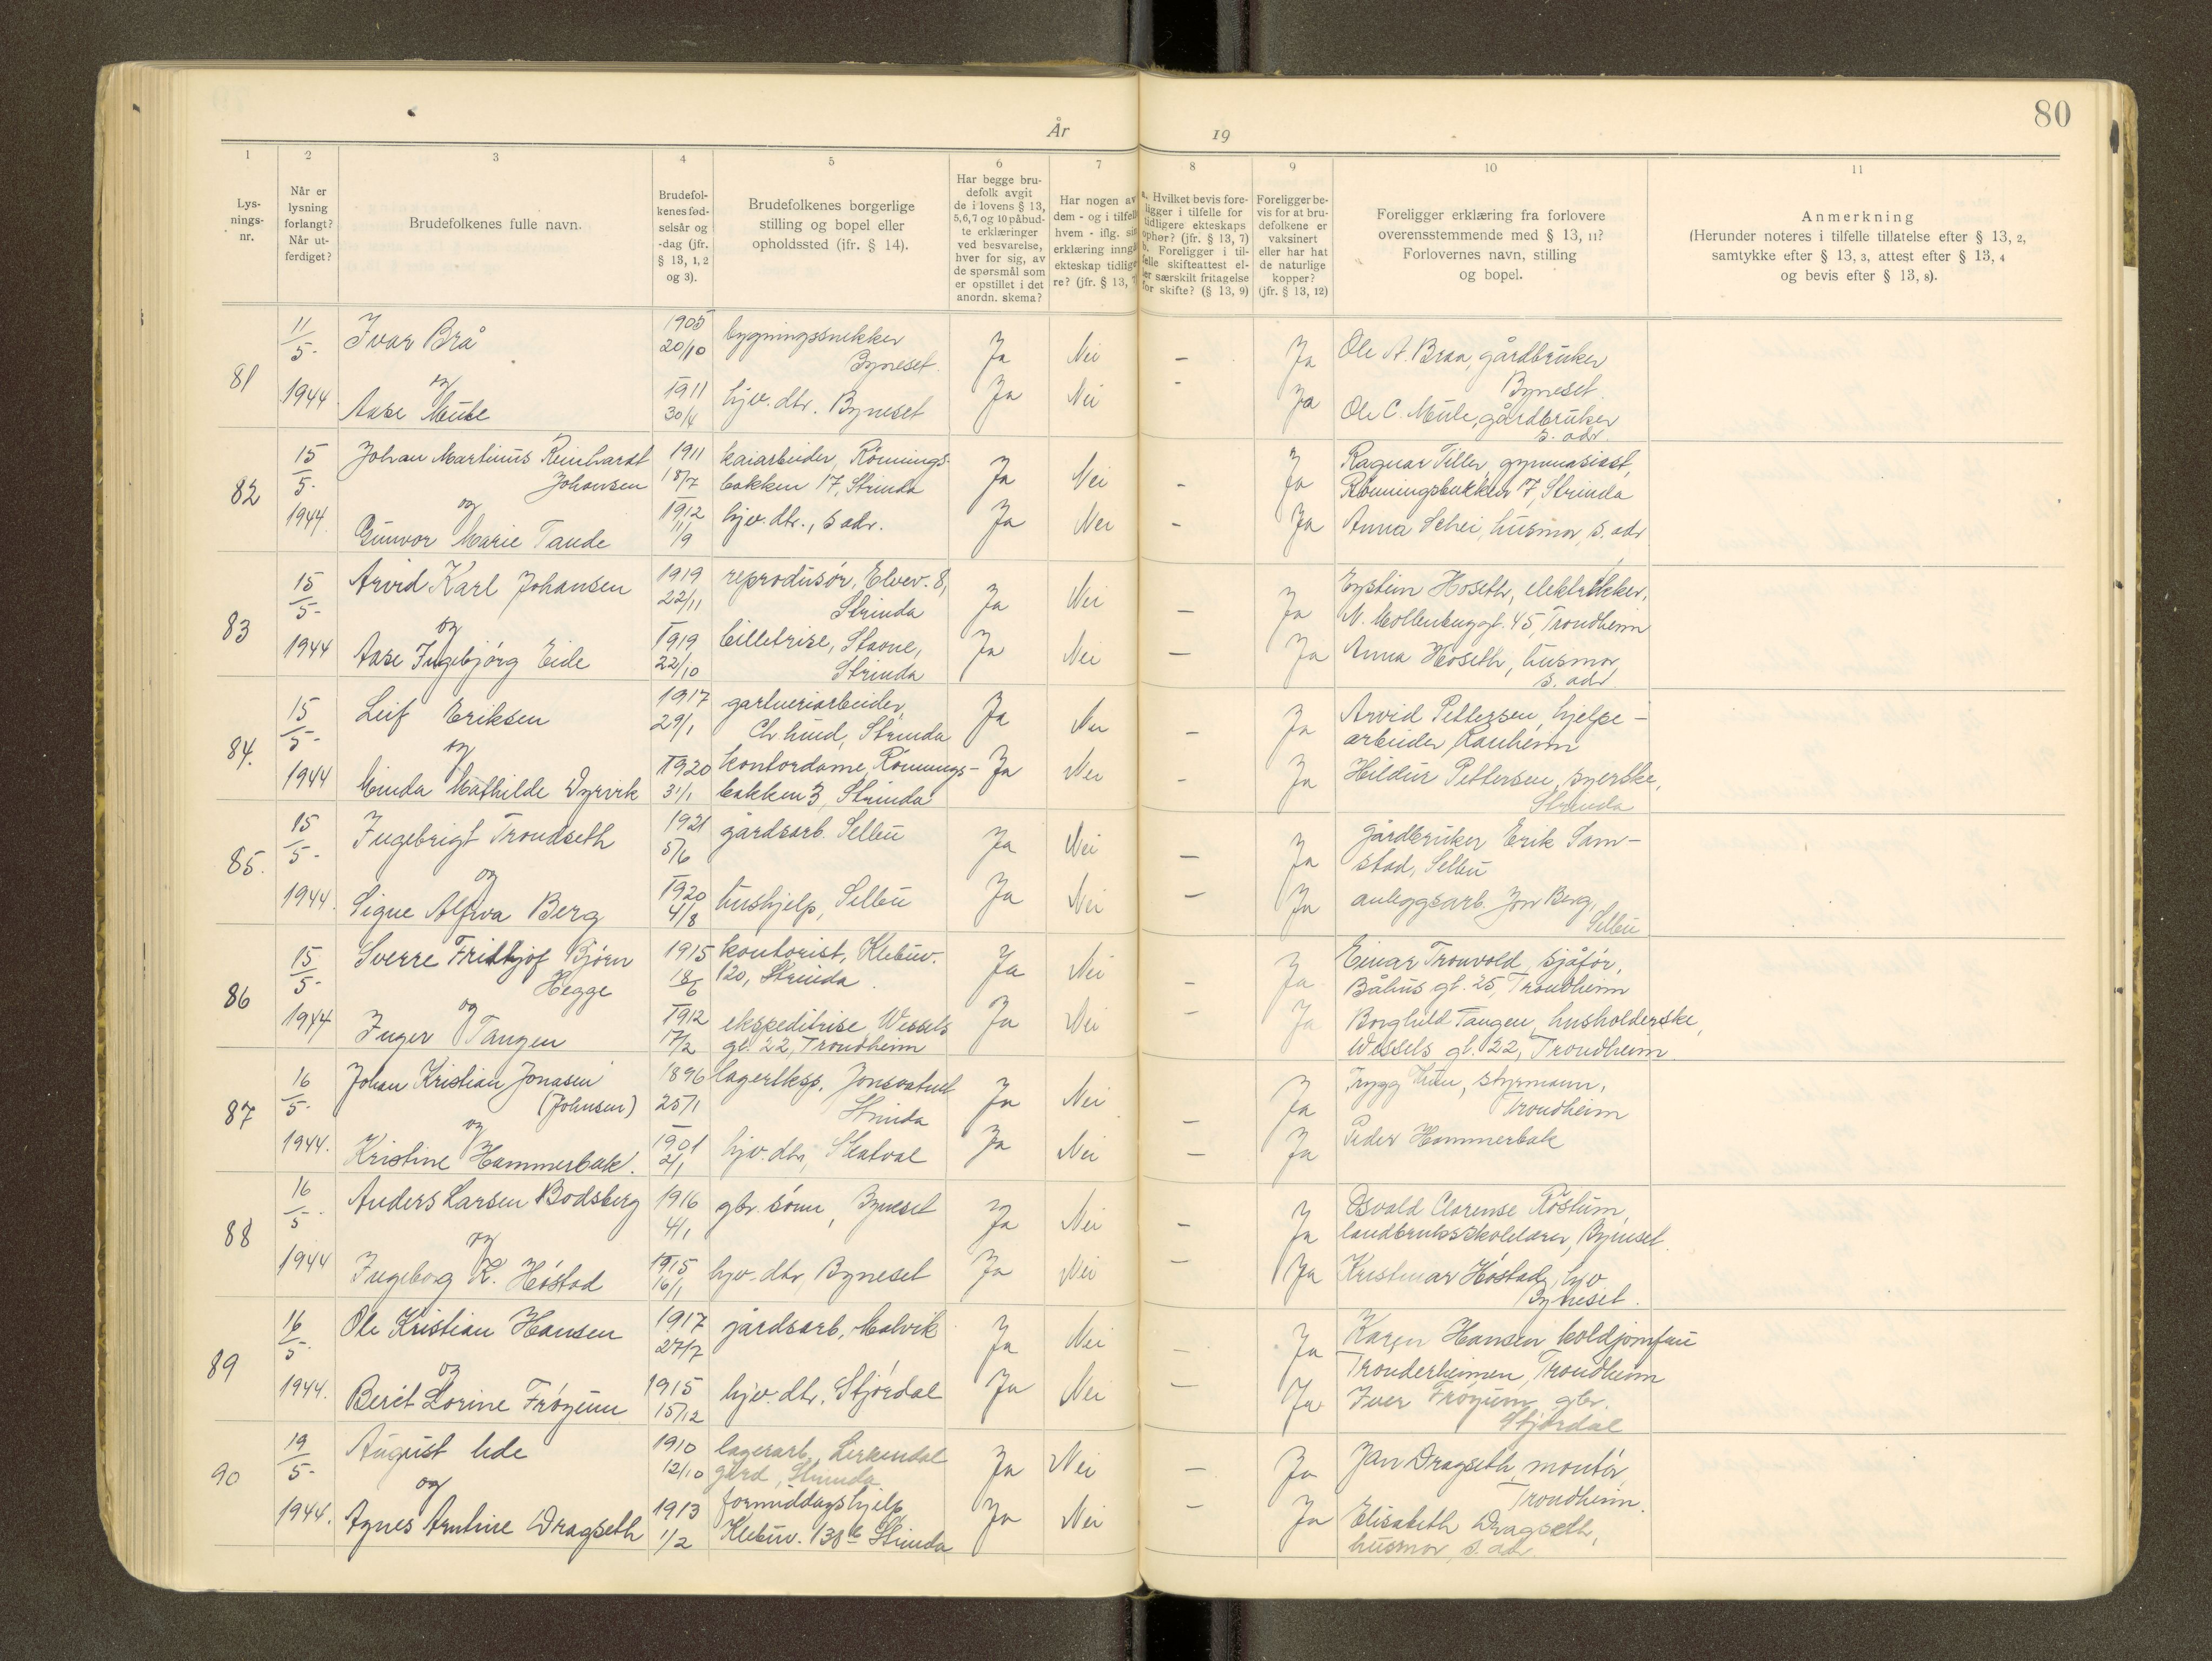 80
År 19
1 2 3 4 5 6 7 8 9 10 11
Lys-
nings-
nr.
Når er
lysning
forlangt?
Når ut-
ferdiget?
Brudefolkenes fulle navn.
Brudefol-
kenes fød-
selsår og
-dag (jfr.
§ 13, 1, 2
og 3).
Brudefolkenes borgerlige
stilling og bopel eller
opholdssted (jfr. § 14).
Har begge bru-
defolk avgit
de i lovens § 13,
5, 6, 7 og 10 påbud-
te erklæringer
ved besvarelse,
hver for sig, av
de spørsmål som
er opstillet i det
anordn. skema?
Har nogen av
dem - og i tilfelle
hvem - iflg. sin
erklæring inngå
ekteskap tidlige
re? (jfr. § 13, 7
a. Hvilket bevis fore-
ligger i tilfelle for
tidligere ekteskaps
ophør? (jfr. § 13, 7)
b. Foreligger i til-
felle skifteattest el-
ler særskilt fritagelse
for skifte? (§ 13, 9)
Foreligger be-
vis for at bru-
defolkene er
vaksinert
eller har hat
de naturlige
kopper?
(jfr. § 13, 12)
Foreligger erklæring fra forlovere
overensstemmende med § 13, 11?
Forlovernes navn, stilling
og bopel.
Anmerkning
(Herunder noteres i tilfelle tillatelse efter § 13, 2,
samtykke efter § 13, 3, attest efter § 13, 4
og bevis efter § 13, 8).
81 11/5- 1944
Ivar Brå 1905 20/10 bygningssnekker Byneset. Ja Nei - Ja Ole A. Braa, gårdbruker Byneset.
og
Aase Mule 1911 30/4 hjv. dtr. Byneset Ja Nei - Ja Ole C. Mule, gårdbruker s. adr.
82 15/5- 1944.
Johan Martinus Reinhardt Johansen 1911 18/7 kaiarbeider, Rønnings-
bakken 17, Strinda Ja Nei - Ja Ragnar Tiller, gymnasiast,
Rønningsbakken 17, Strinda
og
Gunvor Marie Tande 1912 11/9 hjv. dtr., s adr. Ja Nei - Ja Anna Schei, husmor, s. adr
83 15/5- 1944
Arvid Karl Johansen 1919 22/11 reprodusør, Elvev. 8,
Strinda Ja Nei - Ja Eystein Hoseth, elektrikker,
N. Møllenberggt. 45, Trondheim
og
Aase Ingebjørg Eide 1919 22/10 billetrise, Stavne,
Strinda Ja Nei - Ja Anna Hoseth, husmor,
s. adr.
84. 15/5- 1944
Leif Eriksen 1917 29/1 gartneriarbeider,
Strinda Ja Nei - Ja Arvid Pettersen, hjelpe-
arbeider, Ranheim
og
Minda Mathilde Dyrvik 1920 31/1 kontordame, Rønnings-
bakken 3, Strinda Ja Nei - Ja Hildur Pettersen, syerske,
Strinda
85. 15/5- 1944.
Ingebrigt Trondseth 1921 5/6 gårdsarb. Selbu Ja Nei - Ja gårdbruker Erik Sam-
stad, Selbu
og
Signe Berg 1920 4/8 hushjelp, Selbu Ja Nei - Ja anleggsarb. Jon Berg,
Selbu
86 15/5- 1944
Sverre Fridtjof Bjørn
Hegge 1915 18/6 kontorist, Klebuv.
120, Strinda. Ja Nei - Ja Einar Tronvold, sjåfør,
Båhus gt. 25, Trondheim
og
Inger Tangen 1912 17/2 ekspeditrise, Wessels
gt. 22, Trondheim Ja Nei - Ja Borghild Tangen, husholderske,
Wessels gt. 22, Trondheim
87 16/5- 1944.
Johan Kristian Jonasen
(Johnsen) 1896 25/1 Jonsvatnet
Strinda Ja Nei - Ja Trygg styrmann,
Trondheim
og
Kristine Hammerbak. 1901 2/1 hjv. dtr, Skatval Ja Nei - Ja Peder Hammerbak
88 16/5- 1944
Anders Larsen Bodsberg 1916 4/1 gbr. sønn, Byneset Ja Nei - Ja Osvald Clarense Røstum,
landbruksskolelærer, Byneset.
og
Ingeborg K. Høstad 1915 16/1 hjv. dtr, Byneset Ja Nei - Ja Kristmar Høstad, hjv
Byneset.
89 16/5- 1944.
Ole Kristian Hansen 1917 27/7 gårdsarb, Malvik Ja Nei - Ja Karen Hansen koldjomfru
Trønderheimen, Trondheim
og
Berit Lorine Frøyum 1915 15/12 hjv. dtr. Stjørdal Ja Nei - Ja Iver Frøyum, gbr.
Stjørdal
90 19/5- 1944.
August 1910 12/10 lagerarb, Lerkendal
gård, Strinda Ja Nei - Ja Jan Dragseth, montør,
Trondheim.
og
Agnes Arntine Dragseth 1913 1/2 formiddagshjelp
Klebuv. 138 Strinda Ja Nei - Ja Elisabeth Dragseth,
husmor, s. adr.